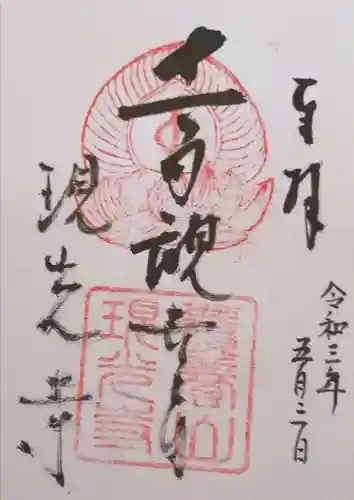 奉拝
令和三年
五月三日
十一面観音
現光寺
現光寺